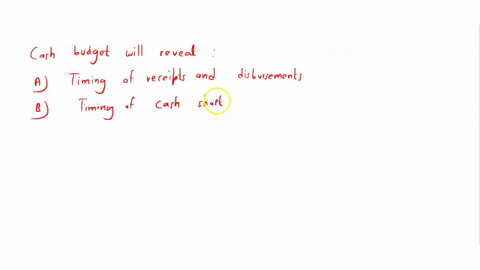 Cash budget will reveal :
A) Timing of receipts and disbursements
B) Timing of cash short